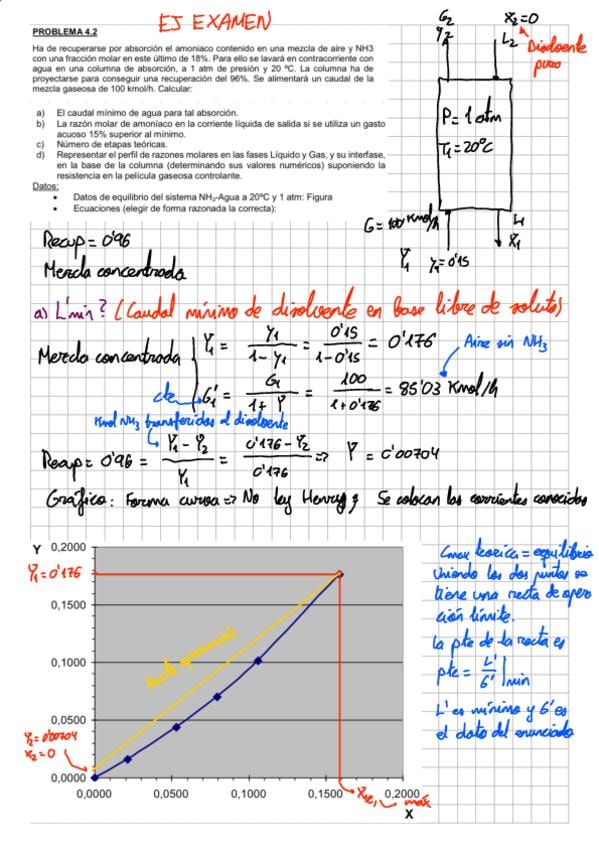 EJ EXAMEN
PROBLEMA 4.2
Ha de recuperarse por absorción el amoniaco contenido en una mezcla de aire y NH3
con una fracción molar en este último de 18%. Para ello se lavará en contracorriente con
agua en una columna de absorción, a 1 atm de presión y 20 ºC. La columna ha de
proyectarse para conseguir una recuperación del 96%. Se alimentará un caudal de la
mezcla gaseosa de 100 kmol/h. Calcular:
a) El caudal mínimo de agua para tal absorción.
b) La razón molar de amoníaco en la corriente líquida de salida si se utiliza un gasto
acuoso 15% superior al mínimo.
c) Número de etapas teóricas.
d) Representar el perfil de razones molares en las fases Líquido y Gas, y su interfase,
en la base de la columna (determinando sus valores numéricos) suponiendo la
resistencia en la película gaseosa controlante.
Datos:
• Datos de equilibrio del sistema NH3-Agua a 20ºC y 1 atm: Figura
• Ecuaciones (elegir de forma razonada la correcta):
G2
Y2
X2=0
L2
Disolvente
puro
P= 1 atm
T1=20ºC
G= 100 Kmol/h
L1
X1
Y1 y1=0'15
Recup= 0'96
Mezcla concentrada
a) L'min? (Caudal mínimo de disolvente en base libre de soluto)
Mezcla concentrada
Y1 = y1/(1-y1) = 0'15/(1-0'15) = 0'176
Aire sin NH3
cte G1' = G1/(1+Y) = 100/(1+0'176) = 85'03 Kmol/h
Kmol NH3 transferidos al disolvente
Recup= 0'96 = (Y1-Y2)/Y1 = (0'176-Y2)/0'176 => Y = 0'00704
Gráfico: Forma curva => No ley Henry; Se colocan las corrientes conocidas
Y 0,2000
Y1=0'176
0,1500
0,1000
0,0500
Y2=0'00704
X2=0
0,0000
0,0000 0,0500 0,1000 0,1500 0,2000
X
máx
Cmax teorica = equilibrio
Uniendo los dos puntos se
tiene una recta de oper
ación límite.
la pte de la recta es
pte= L'/G' |min
L' es mínimo y G' es
el dato del enunciado